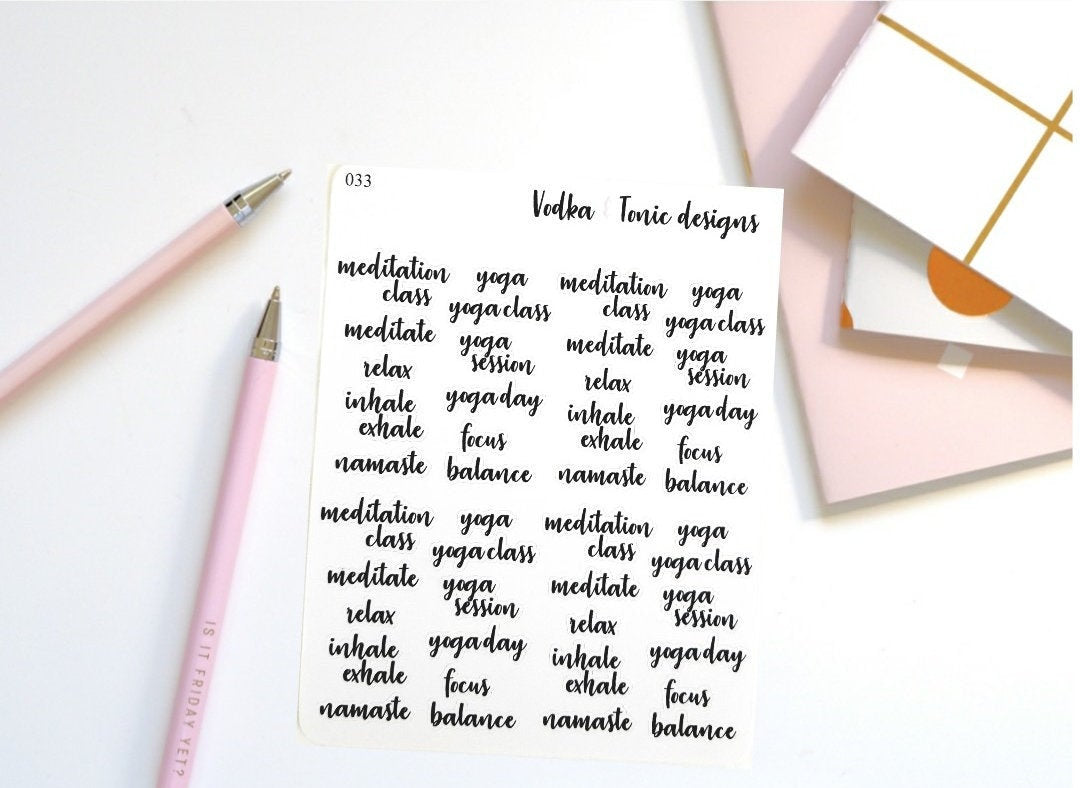 033
Vodka Tonic designs
meditation class
yoga
yoga class
meditate
yoga session
relax
inhale exhale
yoga day
focus
namaste
balance
meditation class
yoga
yoga class
meditate
yoga session
relax
inhale exhale
yoga day
focus
namaste
balance
meditation class
yoga
yoga class
meditate
yoga session
relax
inhale exhale
yoga day
focus
namaste
balance
meditation class
yoga
yoga class
meditate
yoga session
relax
inhale exhale
yoga day
focus
namaste
balance
IS IT FRIDAY YET?